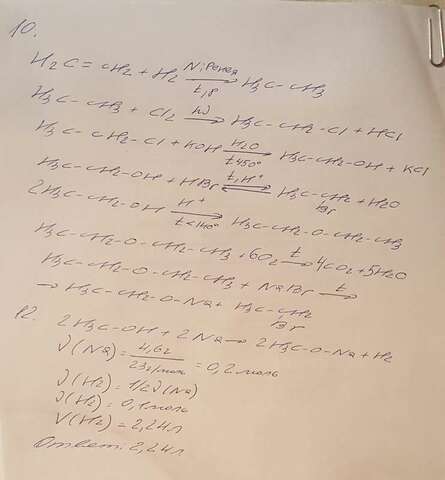 10.
H2C = CH2 + H2 Ni;Ренея t,p → H3C – CH3
H3C – CH3 + Cl2 hν → H3C – CH2 – Cl + HCl
H3C – CH2 – Cl + KOH H2O t450° → H3C – CH2 – OH + KCl
H3C – CH2 – OH + HBr t,H⁺ ⇄ H3C – CH2 + H2O
Br
2H3C – CH2 – OH H⁺ t<140° → H3C – CH2 – O – CH2 – CH3
H3C – CH2 – O – CH2 – CH3 + 6O2 t → 4CO2 + 5H2O
H3C – CH2 – O – CH2 – CH3 + NaBr t →
→ H3C – CH2 – O – Na + H3C – CH2
Br
12. 2H3C – OH + 2Na → 2H3C – O – Na + H2
ν(Na) = 4,6г / 23г/моль = 0,2 моль
ν(H2) = 1/2 ν(Na)
ν(H2) = 0,1 моль
V(H2) = 2,24л
Ответ: 2,24л